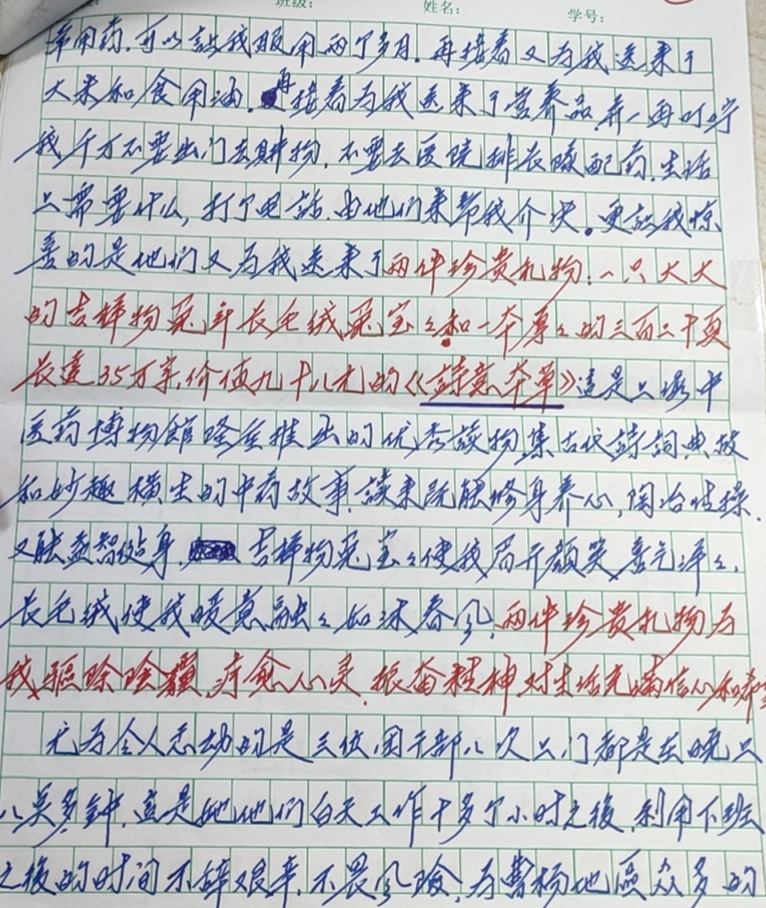 班级： 姓名： 学号：
常用药，可以讓我服用两个多月。再接着又为我送来了
大米和食用油。再接着为我送来了营养品，并一再叮咛
我千万不要出门去购物，不要去医院排長隊配药。生活
上需要什么，打个电話，由他们来帮我介决。更讓我惊
喜的是他们又为我送来了两件珍贵礼物：一只大大
的吉祥物兔年长毛绒兔宝々和一本厚々的三百二十页
长達35万字，价值九十八元的《詩意本草》這是上海中
医药博物館隆重推出的优秀读物，集古代詩詞典故
和妙趣横生的中药故事，读来既能修身养心，陶冶情操，
又能益智健身。吉祥物兔宝々使我眉开颜笑，喜气洋々，
长毛绒使我暖意融々如沐春风，两件珍贵礼物为
我驱除陰霾，疗愈心灵，振奋精神，对生活充满信心和希望
尤为令人感动的是三位困干部八次上门都是在晚上
八点多鈡，這是她他们白天工作十多个小时之後，利用下班
之後的时间不辞艰辛，不畏风险，为曹杨地區众多的